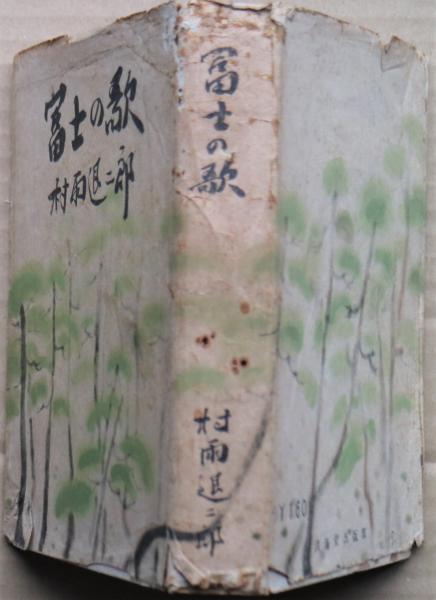 富士の歌
村雨退二郎
富士の歌
村雨退二郎
¥180